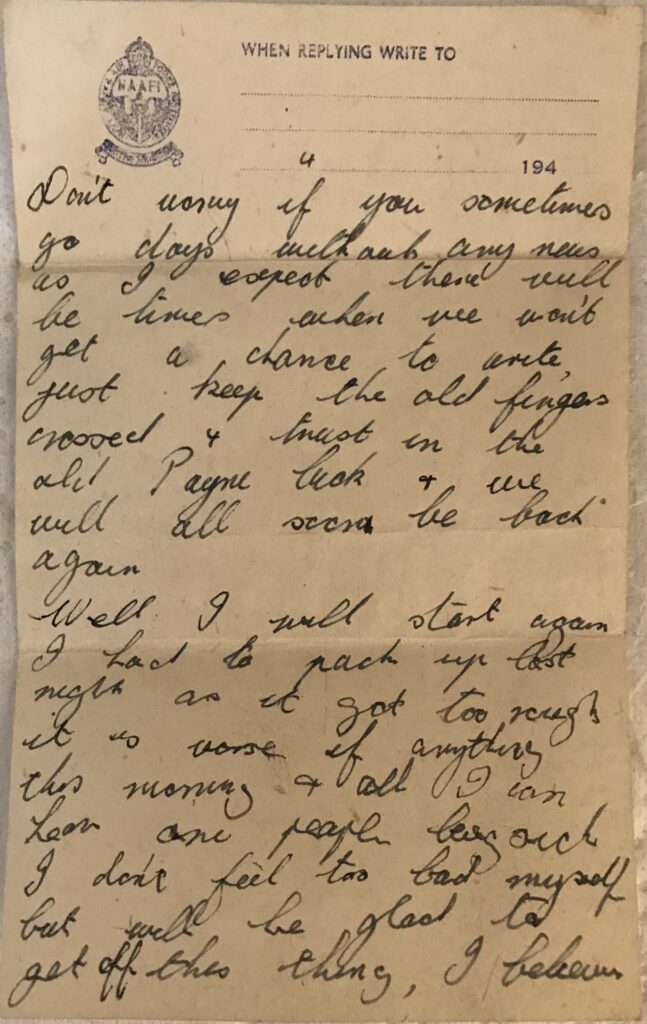 NAAFI
WHEN REPLYING WRITE TO
4
194
Don't worry if you sometimes
go days without any news
as I expect there will
be times when we won't
get a chance to write,
just keep the old fingers
crossed & trust in the
old Payne luck & we
will all soon be back
again
Well I will start again
I had to pack up last
night as it got too rough
it is worse if anything
this morning & all I can
hear are people being sick
I don't feel too bad myself
but will be glad to
get off this thing, I believe